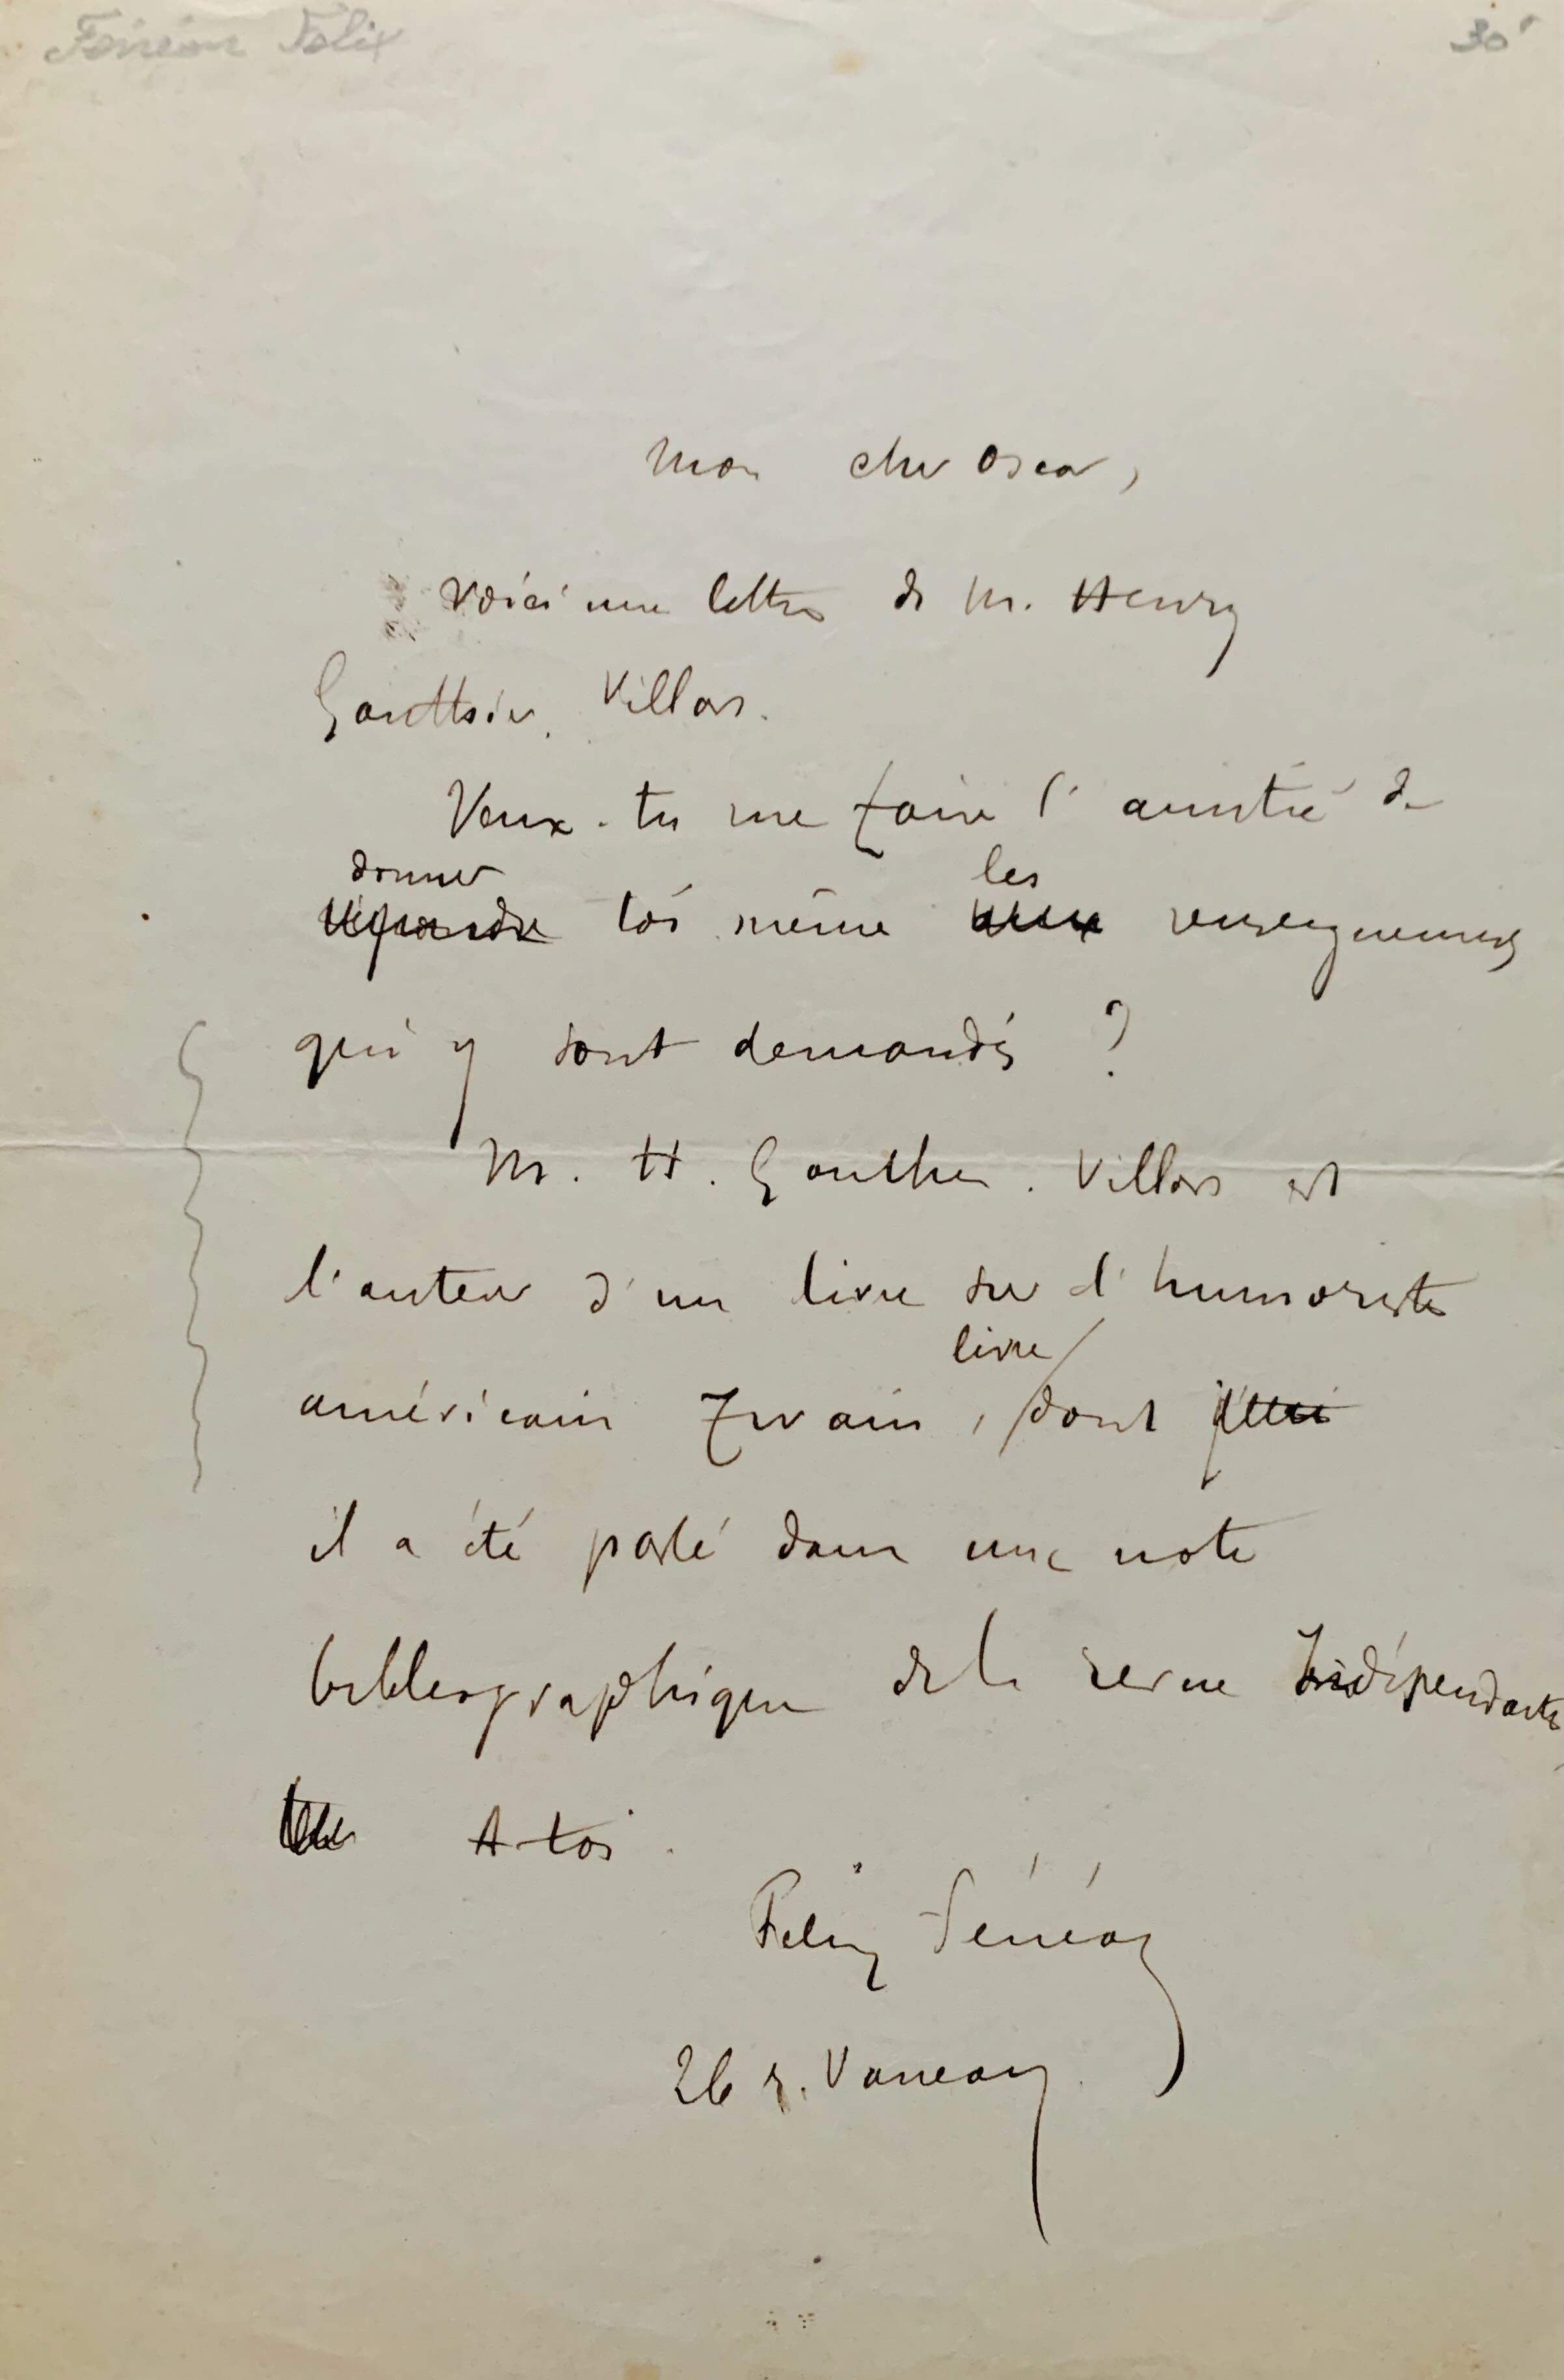 Fénéon Félix
30
Mon cher Oscar,
Voici une lettre de M. Henry
Gauthier. Villars.
Veux-tu me faire l'amitié de
donner les
répondre toi même aux renseignements
qui y sont demandés ?
M. H. Gauthier. Villars est
l'auteur d'un livre sur l'humoriste
livre
américain Twain, dont j'ai
il a été parlé dans une note
bibliographique de la revue Indépendante
A toi.
Félix Fénéon
26 r. Vaneau